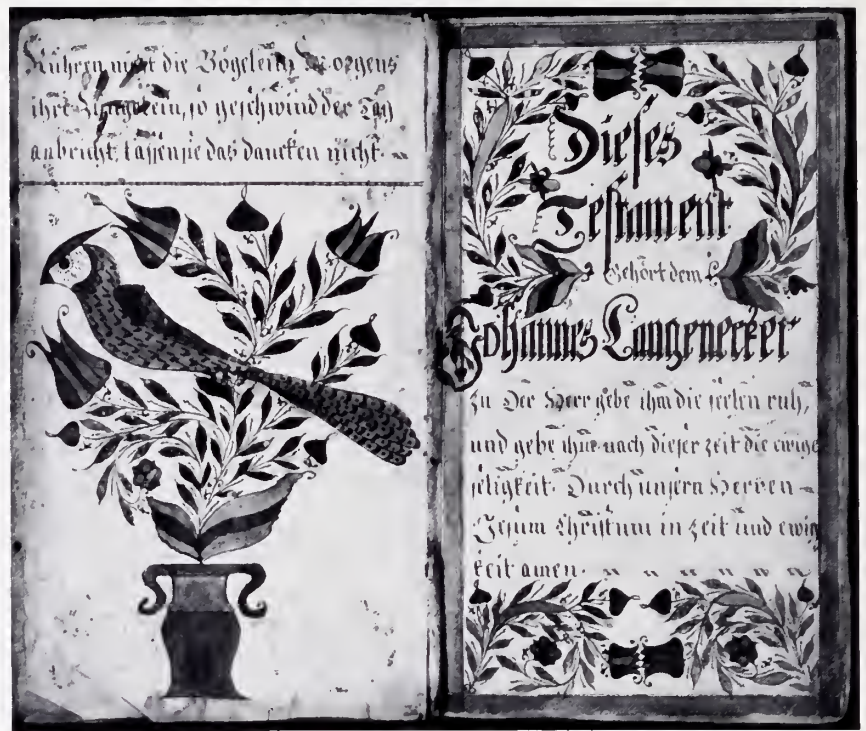 Rühren nicht die Vögelein Morgens
ihre Züngelein, so geschwind der Tag
anbricht, lassen sie das dancken nicht.
Dieses
Testament
Gehört dem
Johannes Langenecker
zu Der Herr gebe ihm die seelen ruh,
und gebe ihm nach dieser zeit die ewige
seligkeit. Durch unsern Herren
Jesum Christum in zeit und ewig
keit amen.